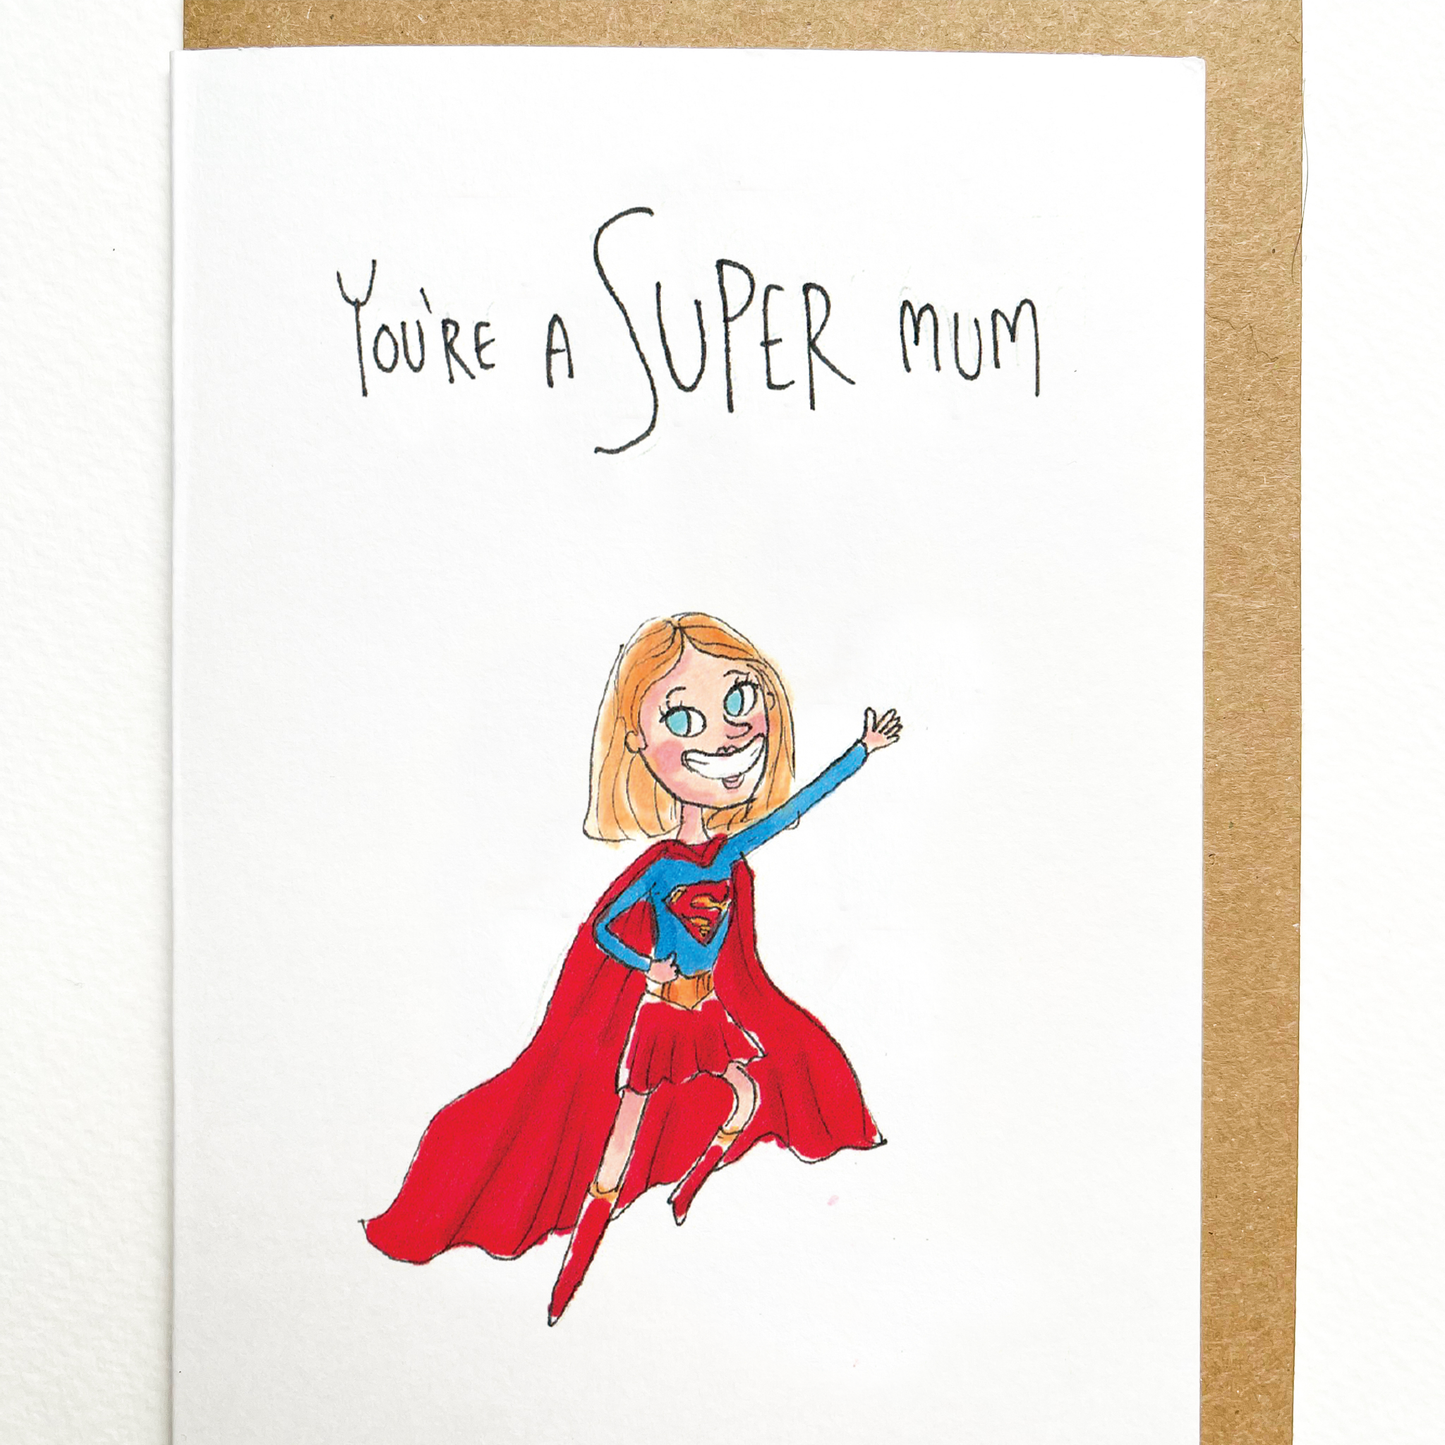 You're a Super mum